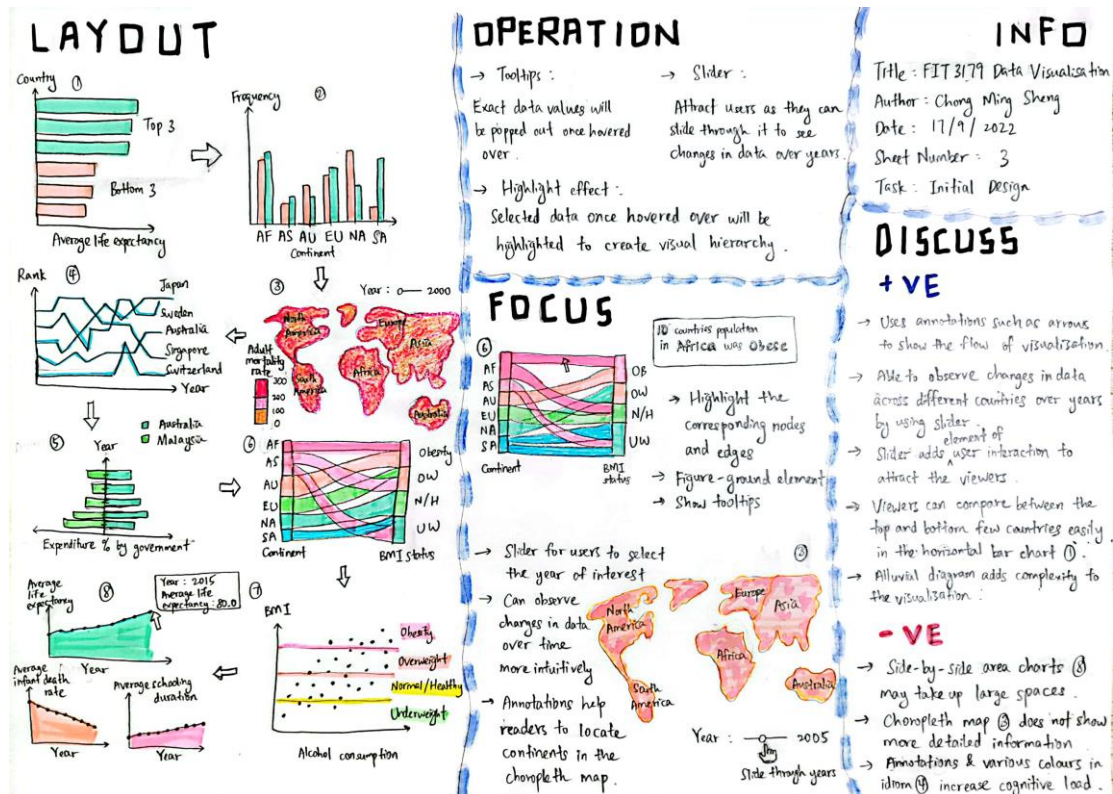 LAYOUT
Country
①
Top 3
Bottom 3
Average life expectancy
Frequency
②
AF AS AU EU NA SA
Continent
Rank
④
Japan
Sweden
Australia
Singapore
Switzerland
Year
③
Year :
2000
North
America
Europe
Asia
Africa
South
America
Australia
Adult
mortality
rate
300
200
100
0
⑤
Year
Australia
Malaysia
Expenditure % by government
⑥
AF
AS
AU
EU
NA
SA
Continent
Obesity
OW
N/H
UW
BMI status
Average
life
expectancy
⑧
Year : 2015
Average life
expectancy : 80.0
Year
Average
infant death
rate
Year
Average schooling
duration
Year
⑦
BMI
Obesity
Overweight
Normal/Healthy
Underweight
Alcohol consumption
OPERATION
→ Tooltips :
Exact data values will
be popped out once hovered
over.
→ Slider :
Attract users as they can
slide through it to see
changes in data over years.
→ Highlight effect :
Selected data once hovered over will be
highlighted to create visual hierarchy.
FOCUS
⑥
AF
AS
AU
EU
NA
SA
Continent
OB
OW
N/H
UW
BMI
status
10 countries population
in Africa was Obese
→ Highlight the
corresponding nodes
and edges
→ Figure-ground element
→ Show tooltips
→ Slider for users to select
the year of interest
→ Can observe
changes in data
over time
more intuitively
→ Annotations help
readers to locate
continents in the
choropleth map.
North
America
Europe
Asia
Africa
South
America
Australia
Year :
2005
Slide through years
INFO
Title : FIT3179 Data Visualisation
Author : Chong Ming Sheng
Date : 17/9/2022
Sheet Number : 3
Task : Initial Design
DISCUSS
+VE
→ Uses annotations such as arrows
to show the flow of visualization
→ Able to observe changes in data
across different countries over years
by using slider.
→ Slider adds element of user interaction to
attract the viewers.
→ Viewers can compare between the
top and bottom few countries easily
in the horizontal bar chart ①.
→ Alluvial diagram adds complexity to
the visualisation.
-VE
→ Side-by-side area charts ⑧
may take up large spaces.
→ Choropleth map ③ does not show
more detailed information
→ Annotations & various colours in
idiom ④ increase cognitive load.